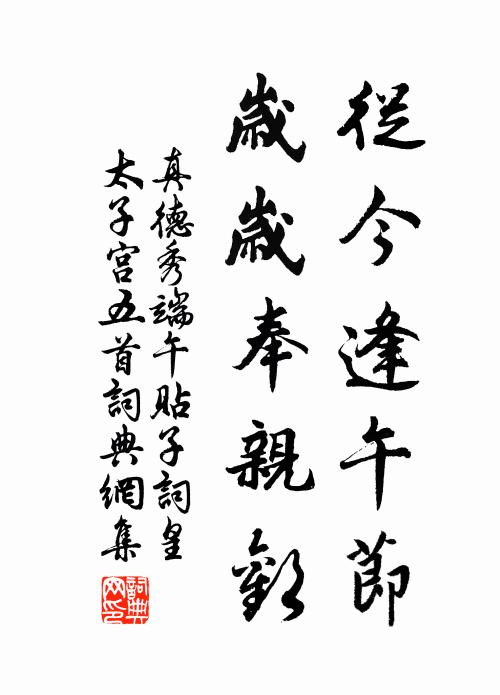 從今逢午節
歲歲奉親歡
真德秀端午貼子詞皇
太子宮五首詞典網集
詞典網印